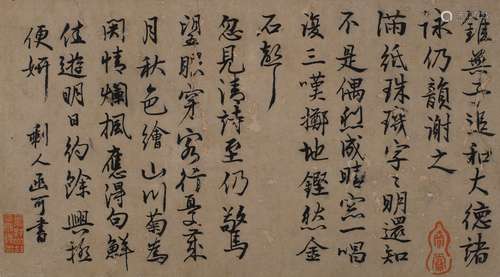 雖無工追和大德諸
詠仍韻謝之
滿紙珠璣字〻明還知
不是偶爾成晴窓一唱
復三嘆擲地鏗然金
石聲
忽見清詩至仍驚
望眼穿客行更幾
月秋色繪山川菊爲
関情爛楓應得句鮮
佳遊明日約餘興極
便妍 剩人函可書